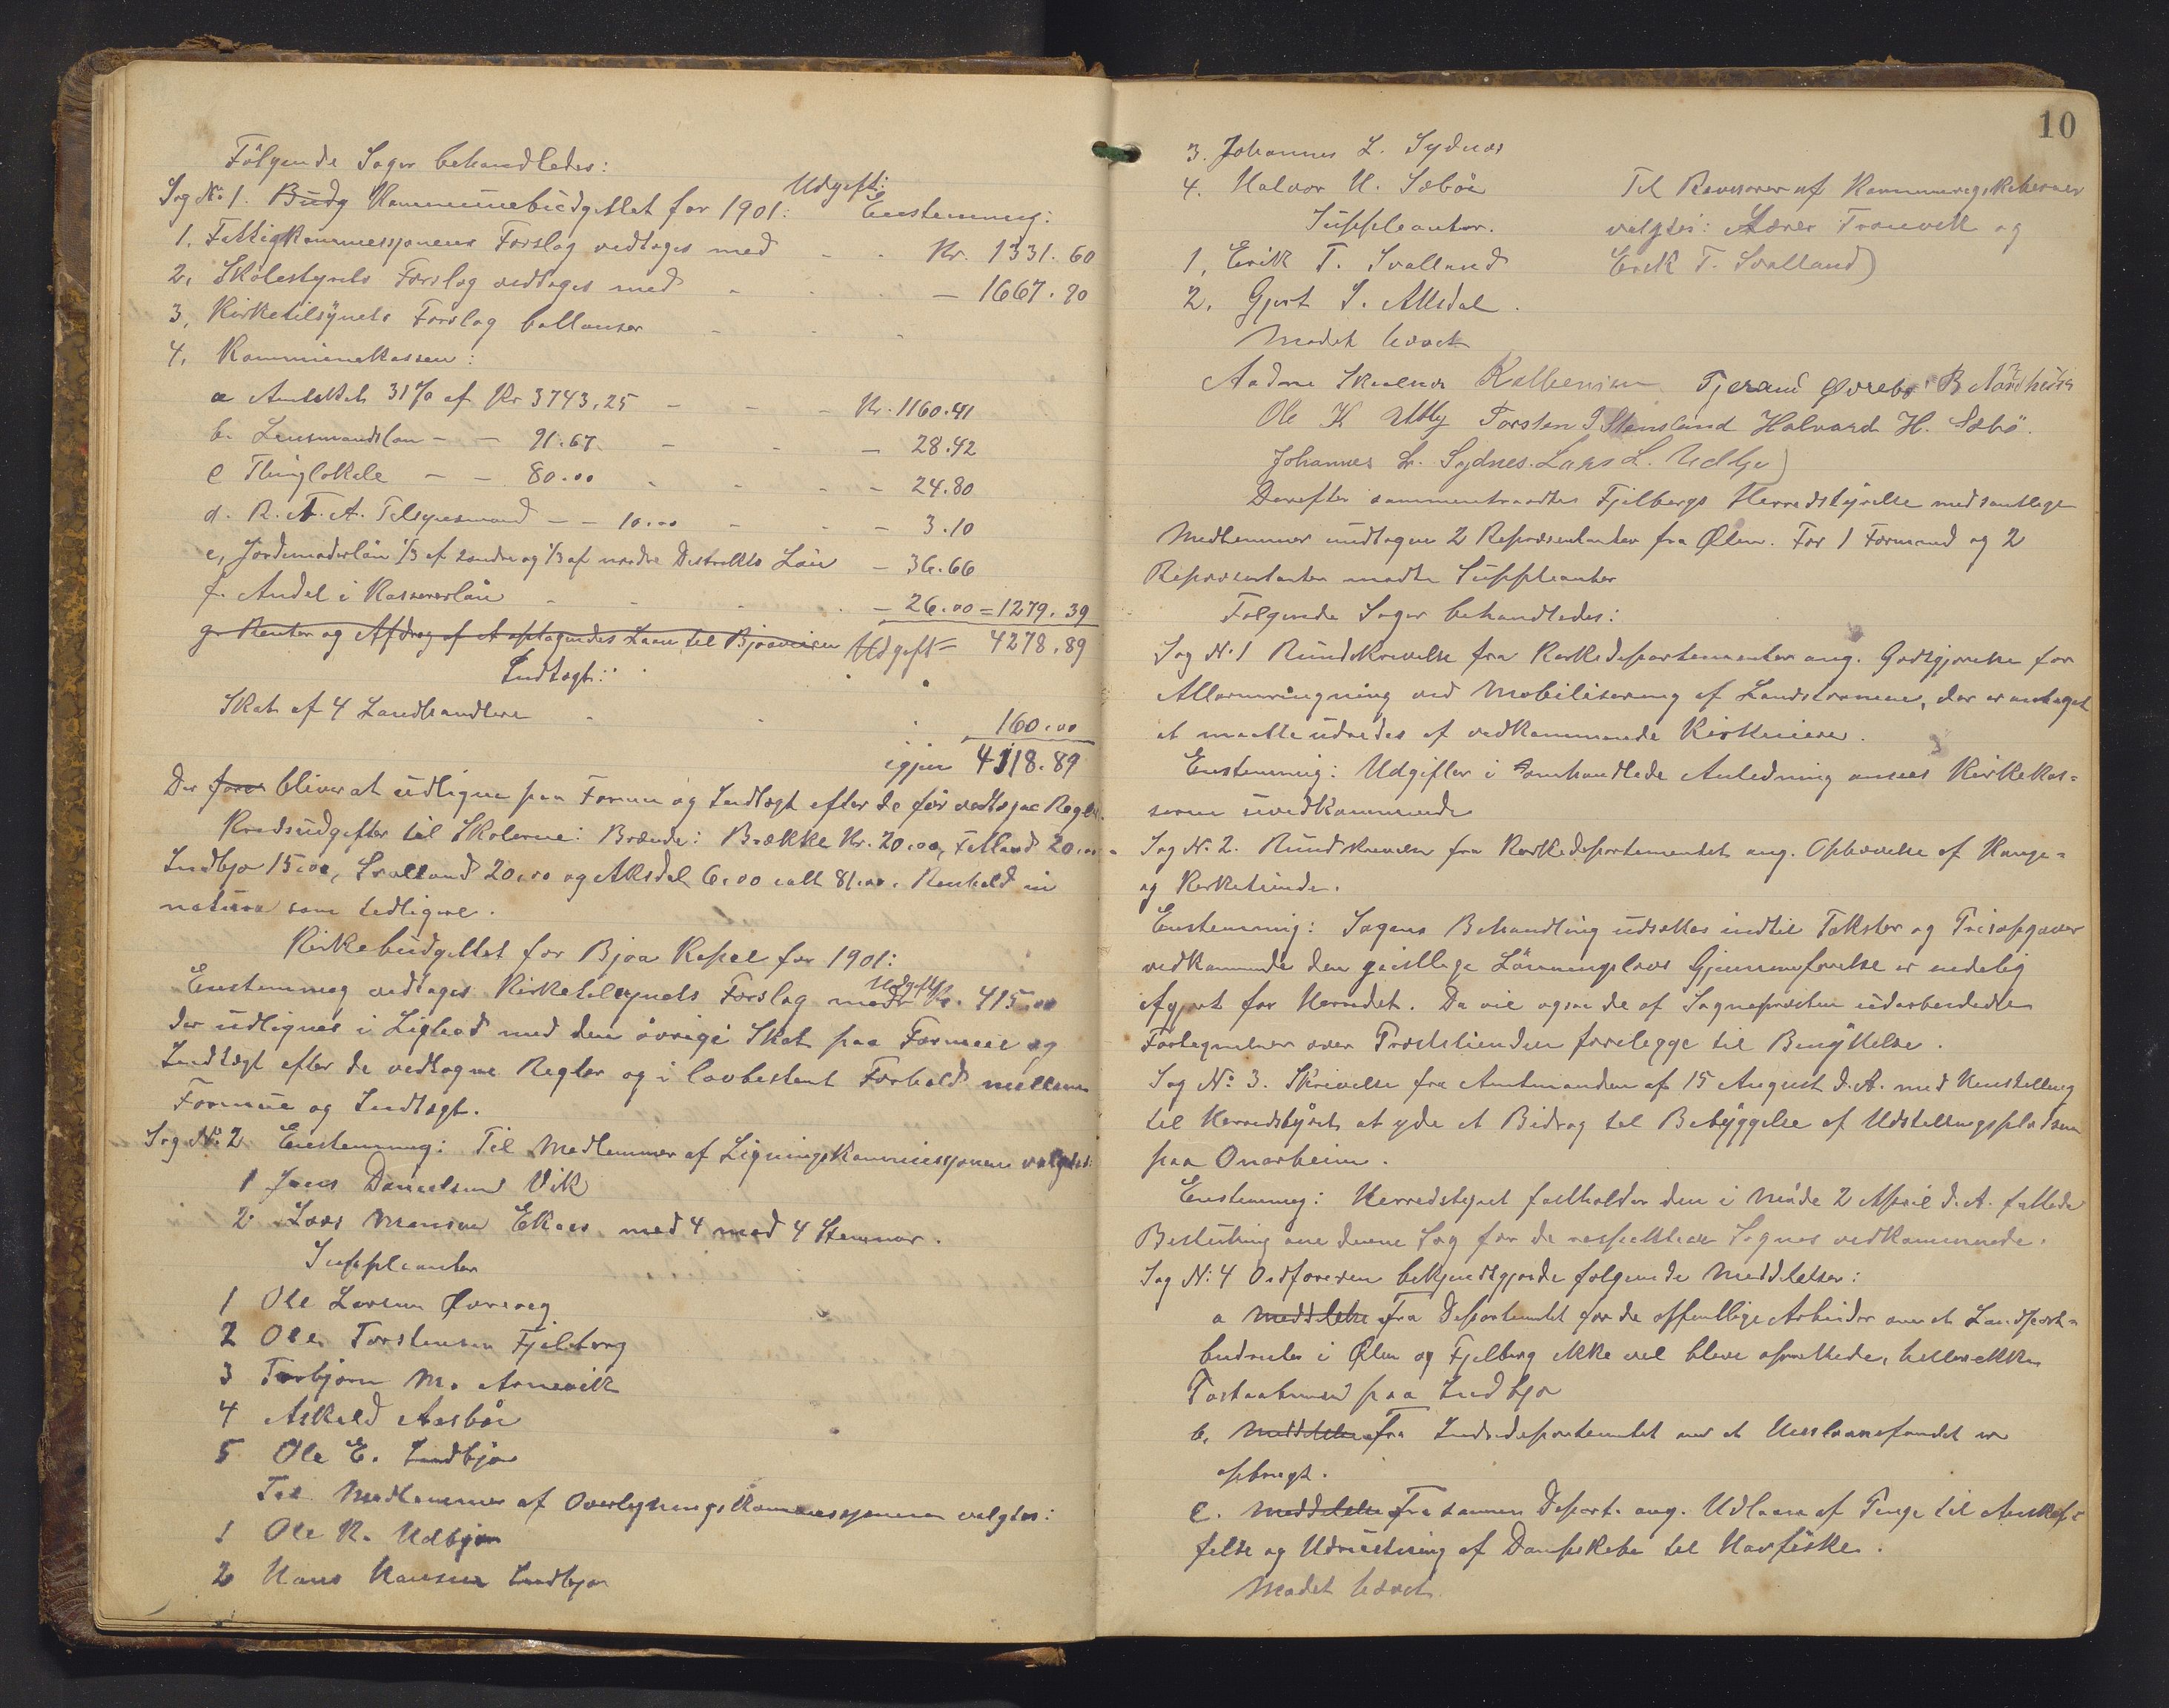 Følgende Sager behandledes:
Sag No 1. Budg Kommunebudgettet for 1901: Udgift: Enstemmig:
1. Fattigkommissjonens Forslag vedtages med - - Kr. 1331.60
2. Skolestyrets Forslag vedtages med - - - 1667.90
3, Kirketilsynets Forslag ballanser - - -
4, Kommunekassen:
a Amtskat 31% af Kr 3743,25 - - - Kr. 1160.41
b. Lensmandsløn - - 91.67 - - - 28.42
c Thinglokale - - 80.00 - - - - 24.80
d. R. A. A. Tilsynsmand - - 10.00 - - - 3.10
e, Jordemoderløn 1/3 af søndre og 1/3 af nordre Distrikts Løn - 36.66
f. Andel i Kassererløn - - - - - 26.00 = 1279.39
g. Renter og Afdrag af et optagendes Laan til Bjoaveien Udgift = 4278.89
Indtægt:
Skat af 4 Landhandlere - - - 160.00
igjen 4118.89
Der bliver at udligne paa Formue og Indtægt efter de før vedtagne Regler.
Kredsudgifter til Skolerne: Brænde: Brække Kr. 20.00, Fatland 20.00
Indbjo 15.00, Svalland 20.00 og Alsdal 6.00 ialt 81.00. Renhold in
natura som tidligere.
Kirkebudgettet for Bjoa Kapel for 1901:
Enstemmig vedtages Kirketilsynets Forslag med Udgift Kr. 415.00
der udlignes i Lighed med den øvrige Skat paa Formue og
Indtægt efter de vedtagne Regler og i lovbestemt Forhold mellem
Formue og Indtægt.
Sag No 2 Enstemmig: Til Medlemmer af Ligningskommissjonen valgtes:
1 Jens Danielsen Vik
2 Lars Monsen Ekaas med 4 mod 4 Stemmer.
Suppleanter
1 Ole Larsen Øvrevig
2 Ole Torstensen Fjelberg
3 Torbjørn M. Arnevik
4 Askild Aasbøe
5 Ole E. Indbjo
Til Medlemmer af Overligningskommissjonen valgtes:
1 Ole K. Udbjoe
2 Hans Hansen Indbjo
10
3. Johannes L. Sydnes
4. Halvor H. Sæbøe
Suppleanter.
1, Erik T. Svalland
2, Gjert S. Alsdal.
Til Revisorer af Kommuneregnskaberne
valgtes: Lærer Tranvik og
Erik T. Svalland)
Mødet hævet
Aadne Skaalnes Tjerand Øvrebø B Nordhuus
Ole K Utby Torsten T Stensland Halvard H. Sæbö.
Johannes L. Sydnes. Lars L. Udbjo)
Derefter sammentraadte Fjelbergs Herredstyrelse med samtlige
Medlemmer undtagen 2 Repræsentanter fra Ølen. For 1 Formand og 2
Repræsentanter mødte Suppleanter
Følgende Sager behandledes:
Sag No 1 Rundskrivelse fra Kirkedepartementet ang. Godtgjørelse for
Allarmringning ved Mobilisering af Landstormen, der er antaget
at maatte udredes af vedkommende Kirkeeiere.
Enstemmig: Udgifter i omhandlede Anledning ansees Kirkekas-
serne uvedkommende
Sag No. 2. Rundskrivelse fra Kirkedepartementet ang. Ophævelse af Konge-
og Kirketiende.
Enstemmig: Sagens Behandling udsættes indtil Takster og Prisopgaver
vedkommende den geistlige Lønningslovs Gjennemførelse er endelig
afgjort for Herredet. Da vil ogsaa de af Sognepresten udarbeidede
Fortegnelser over Præstetienden forelegges til Benyttelse.
Sag No 3. Skrivelse fra Amtmanden af 15 August d.A. med Henstilling
til Herredstyret at yde et Bidrag til Bebyggelse af Udstillingspladsen
paa Onarheim.
Enstemmig: Herredstyret fastholder den i Møde 2 April d.A. fattede
Beslutning om denne Sag for de respektive Sognes vedkommende.
Sag No: 4 Ordføreren bekjendtgjorde følgende Meddelelser:
a Meddelelse Fra Departementet for de offentlige Arbeider om at Landpost-
budruter i Ølen og Fjelberg ikke vil blive oprettede, heller ikke
Postaabneri paa Indbjo
b, Meddelelse Fra Indredepartementet om at Huslaansfondet er
opbrugt.
c. Meddelelse Fra samme Depart. ang. Udlaan af Penge til Anskaf-
felse og Udrustning af Dampskibe til Havfiske.
Mødet hævet.